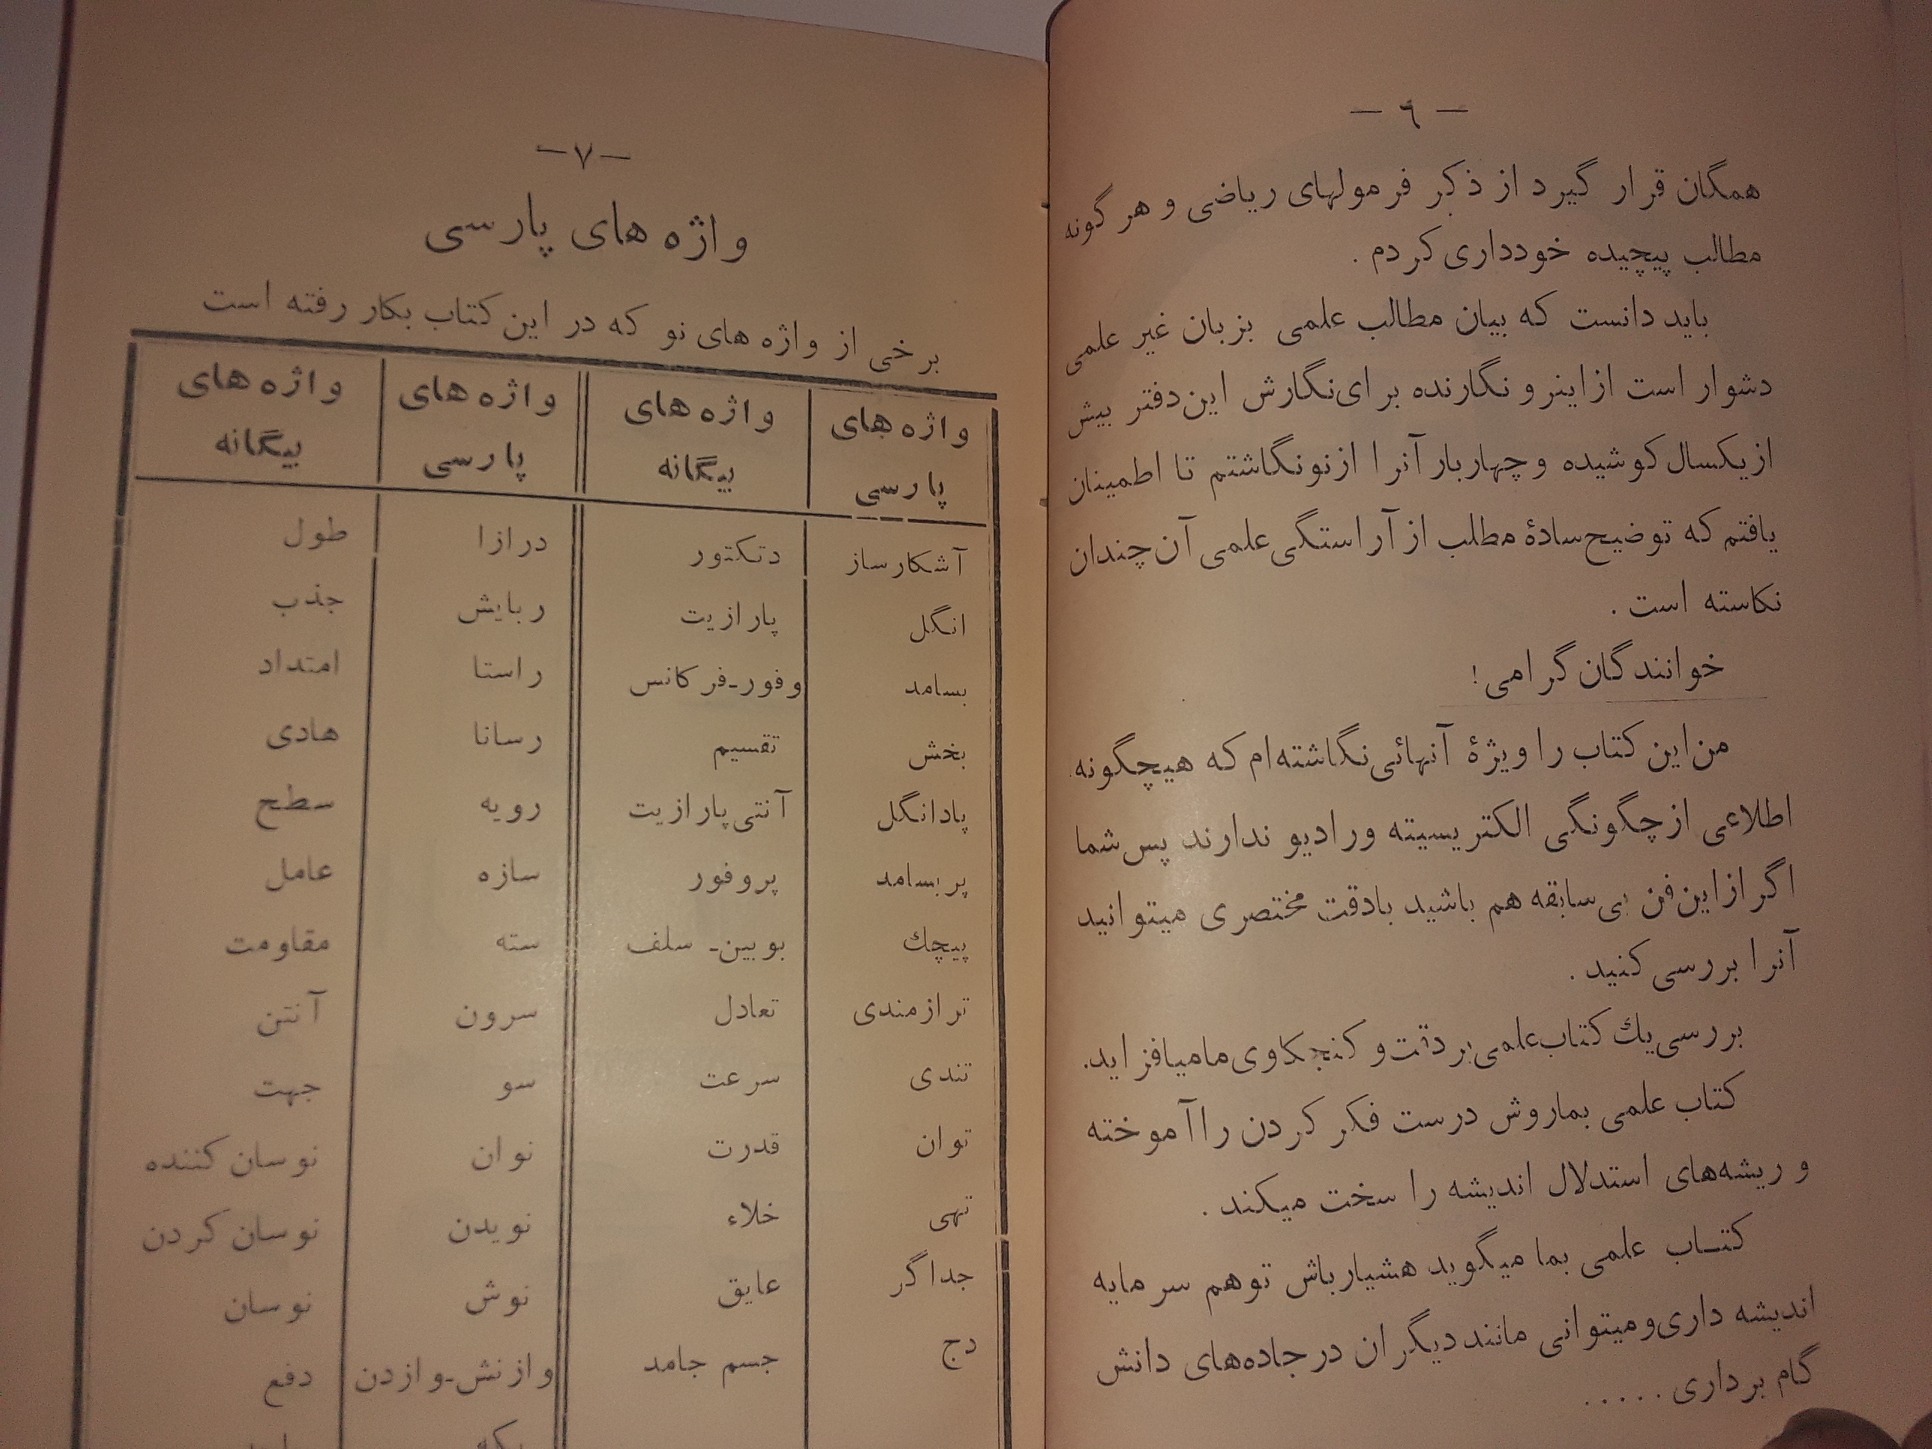 — ٦ —
همگان قرار گیرد از ذکر فرمولهای ریاضی و هر گونه
مطالب پیچیده خودداری کردم .
باید دانست که بیان مطالب علمی بزبان غیر علمی
دشوار است از اینرو نگارنده برای نگارش این دفتر بیش
از یکسال کوشیده و چهار بار آنرا از نو نگاشتم تا اطمینان
یافتم که توضیح سادهٔ مطلب از آراستگی علمی آن چندان
نکاسته است .
خوانندگان گرامی !
من این کتاب را ویژهٔ آنهائی نگاشته‌ام که هیچگونه
اطلاعی از چگونگی الکتریسیته و رادیو ندارند پس شما
اگر از این فن بی سابقه هم باشید بادقت مختصری میتوانید
آنرا بررسی کنید .
بررسی یك کتاب علمی بر دقت و کنجکاوی ما میافزاید.
کتاب علمی بماروش درست فکر کردن را آموخته
و ریشه‌های استدلال اندیشه را سخت میکند .
کتاب علمی بما میگوید هشیار باش تو هم سرمایه
اندیشه داری و میتوانی مانند دیگران در جاده‌های دانش
گام برداری . . . . .
— ٧ —
واژه های پارسی
برخی از واژه های نو که در این کتاب بکار رفته است
واژه های واژه های واژه های واژه های
پارسی بیگانه پارسی بیگانه
آشکارساز دتکتور درازا طول
انگل پارازیت ربایش جذب
بسامد وفور-فرکانس راستا امتداد
بخش تقسیم رسانا هادی
پادانگل آنتی پارازیت رویه سطح
پر بسامد پروفور سازه عامل
پیچك بوبین- سلف سته مقاومت
ترازمندی تعادل سرون آنتن
تندی سرعت سو جهت
توان قدرت نوان نوسان کننده
تهی خلاء نویدن نوسان کردن
جداگر عایق نوش نوسان
دج جسم جامد وازنش-وازدن دفع